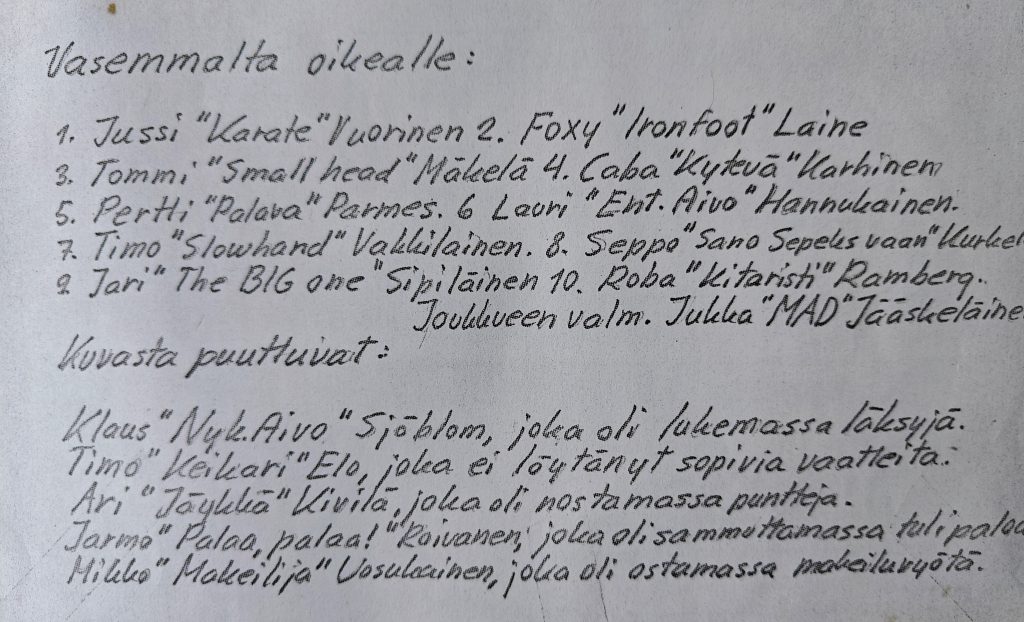 Vasemmalta oikealle:
1. Jussi "Karate" Vuorinen 2. Foxy "Ironfoot" Laine
3. Tommi "Small head" Mäkelä 4. Caba "Kytevä" Karhinen
5. Pertti "Palava" Parmes. 6 Lauri "Ent. Aivo" Hannukainen.
7. Timo "Slowhand" Vakkilainen. 8. Seppo "Sano Sepeks vaan"
9. Jari "The BIG one" Sipiläinen 10. Roba "Kitaristi" Ramberg.
Joukkueen valm. Jukka "MAD" Jääskeläine
Kuvasta puuttuvat:
Klaus "Nyk.Aivo" Sjöblom, joka oli lukemassa läksyjä.
Timo "Keikari" Elo, joka ei löytänyt sopivia vaatteita.
Ari "Jäykkä" Kivilä, joka oli nostamassa puntteja.
Jarmo "Palaa, palaa!" Roivanen, joka oli sammuttamassa tulipaloa
Mikko "Makeilija" Uosukainen, joka oli ostamassa makeiluvyötä.